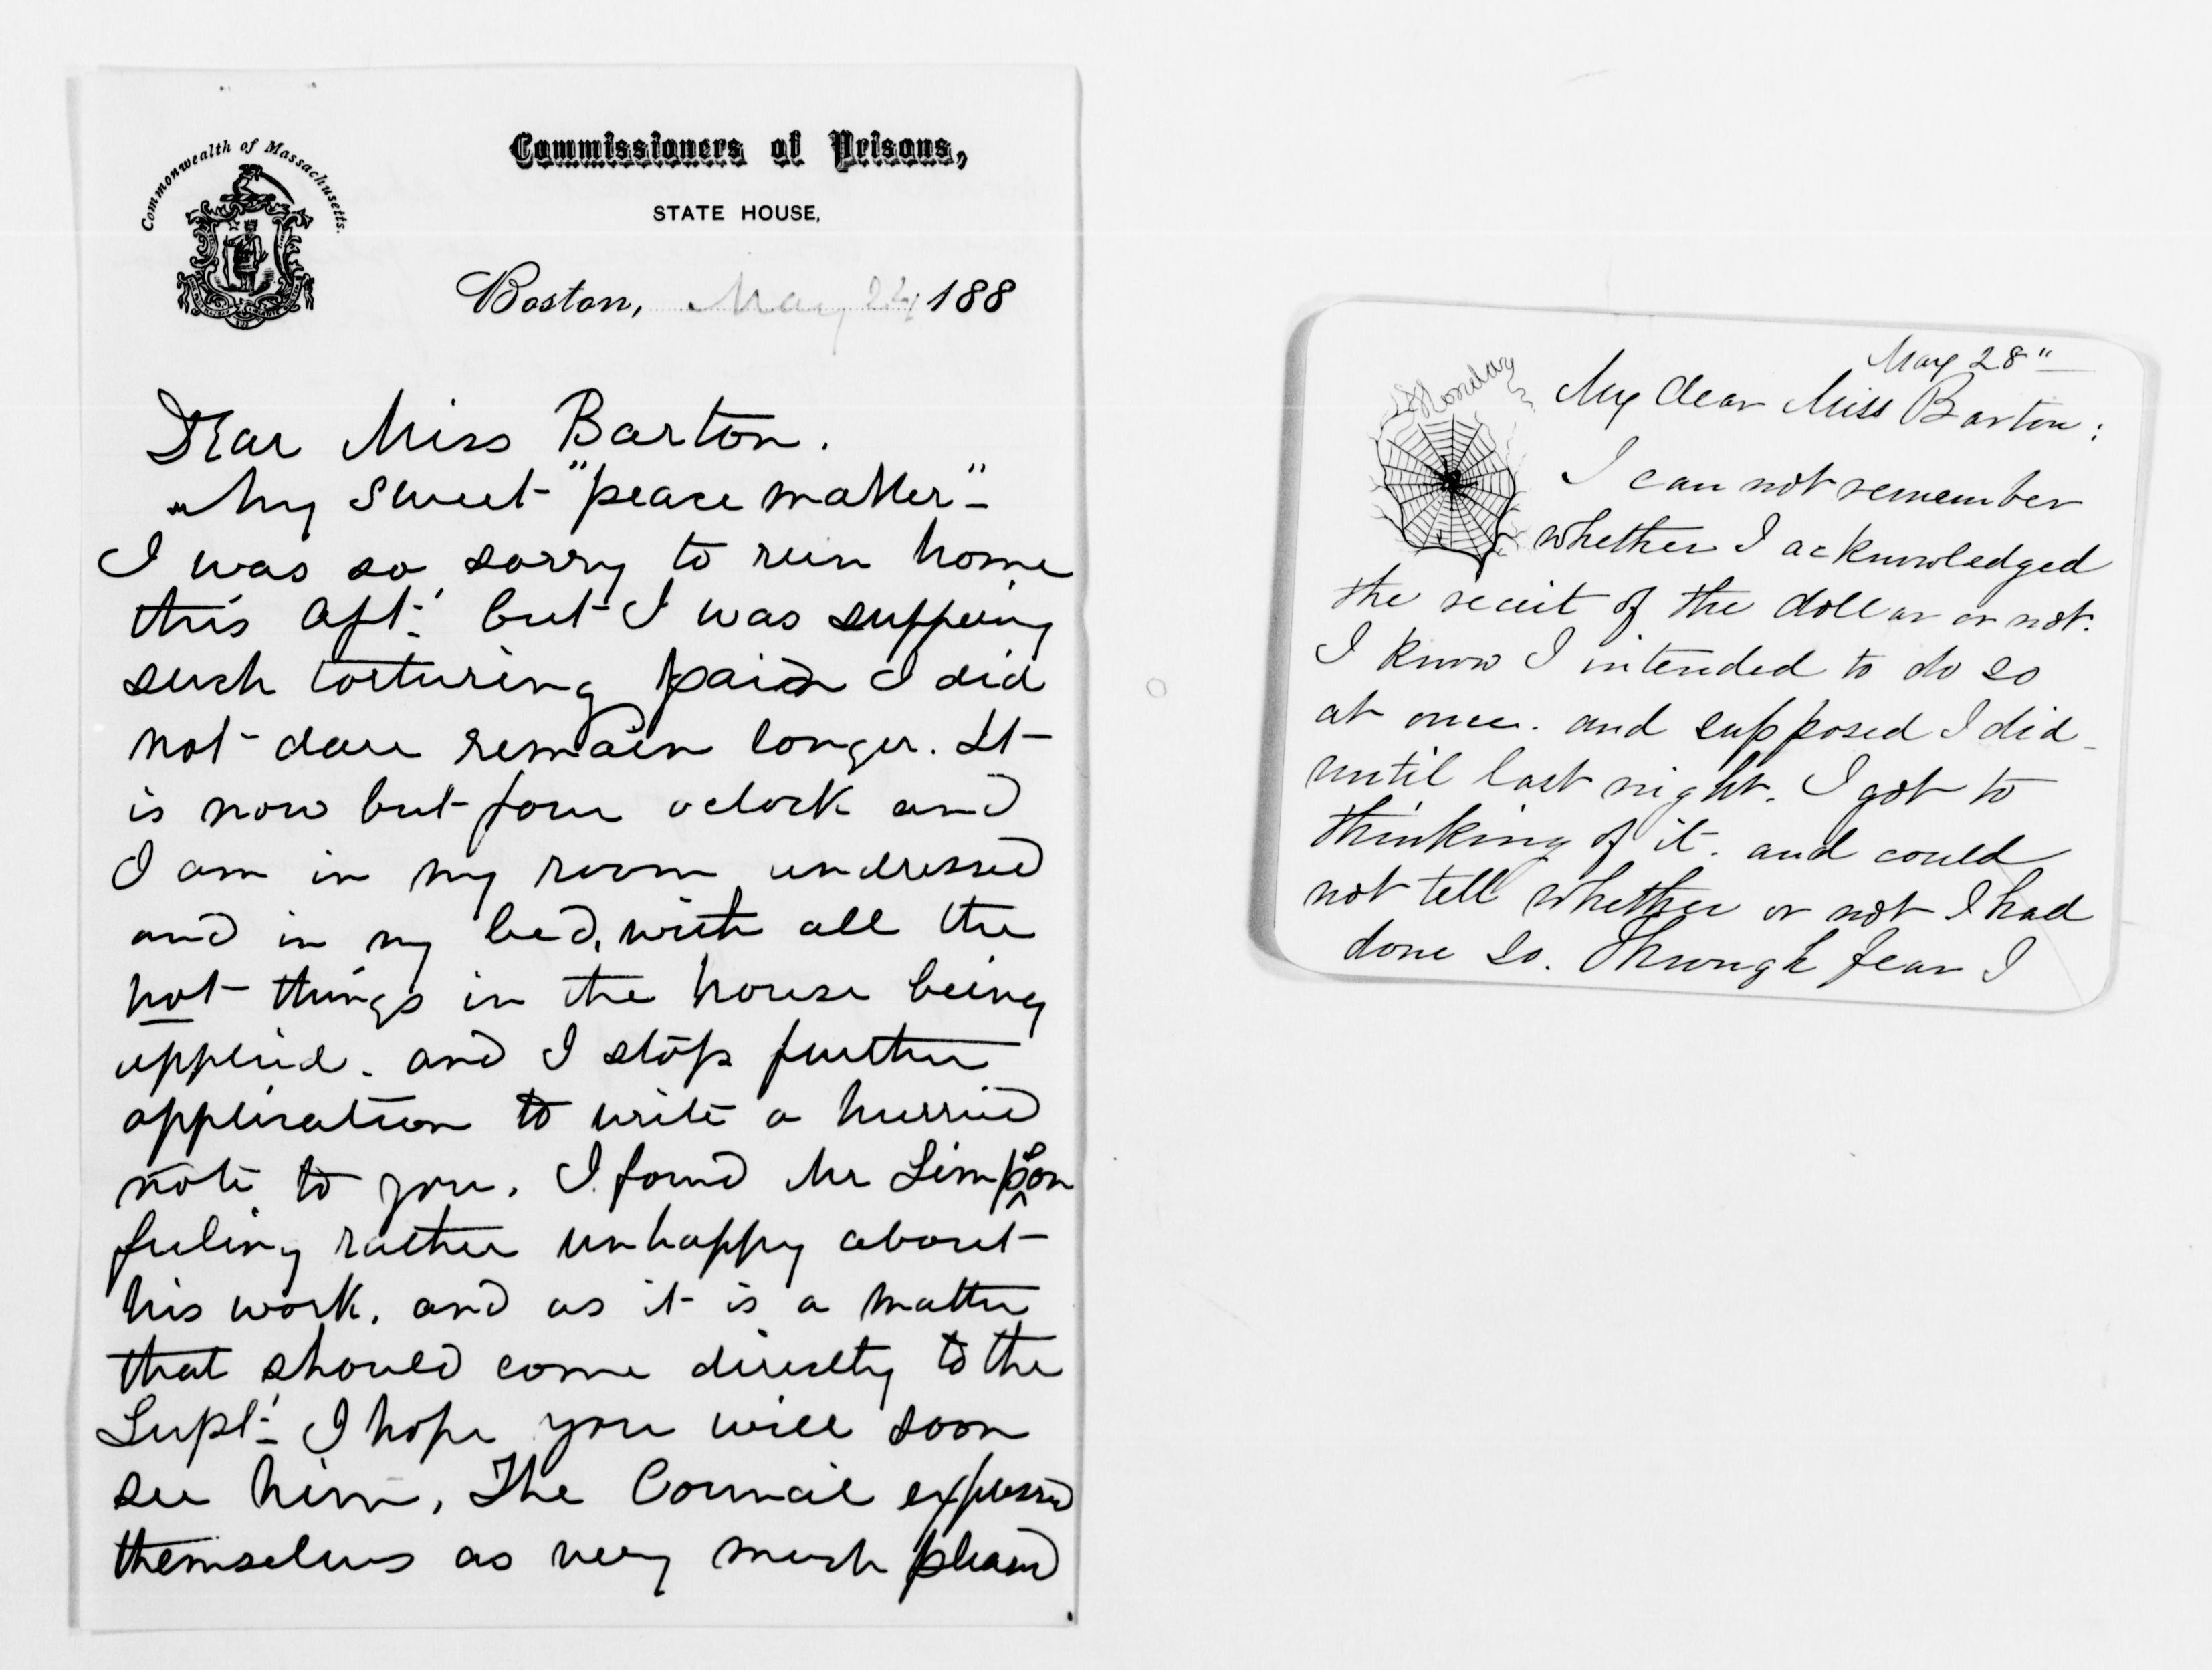 Commonwealth of Massachusetts.
Commissioners of Prisons,
STATE HOUSE,
Boston, May 24 188
Dear Miss Barton.
My sweet "peace maker" -
I was so sorry to run home
this aft:' but I was suffering
such torturing pain I did
not dare remain longer. It
is now but four oclock and
I am in my room undressed
and in my bed, with all the
hot things in the house being
applied. and I stop further
application to write a hurried
note to you. I found Mr Simpson
feeling rather unhappy about
his work. and as it is a matter
that should come directly to the
Supt:' I hope you will soon
see him, The Council expressed
themselves as very much pleased
Monday
May 28"
My dear Miss Barton:
I can not remember
whether I acknowledged
the receit of the dollar or not.
I know I intended to do so
at once. and supposed I did -
until last night. I got to
thinking of it. and could
not tell whether or not I had
done so. Through fear I